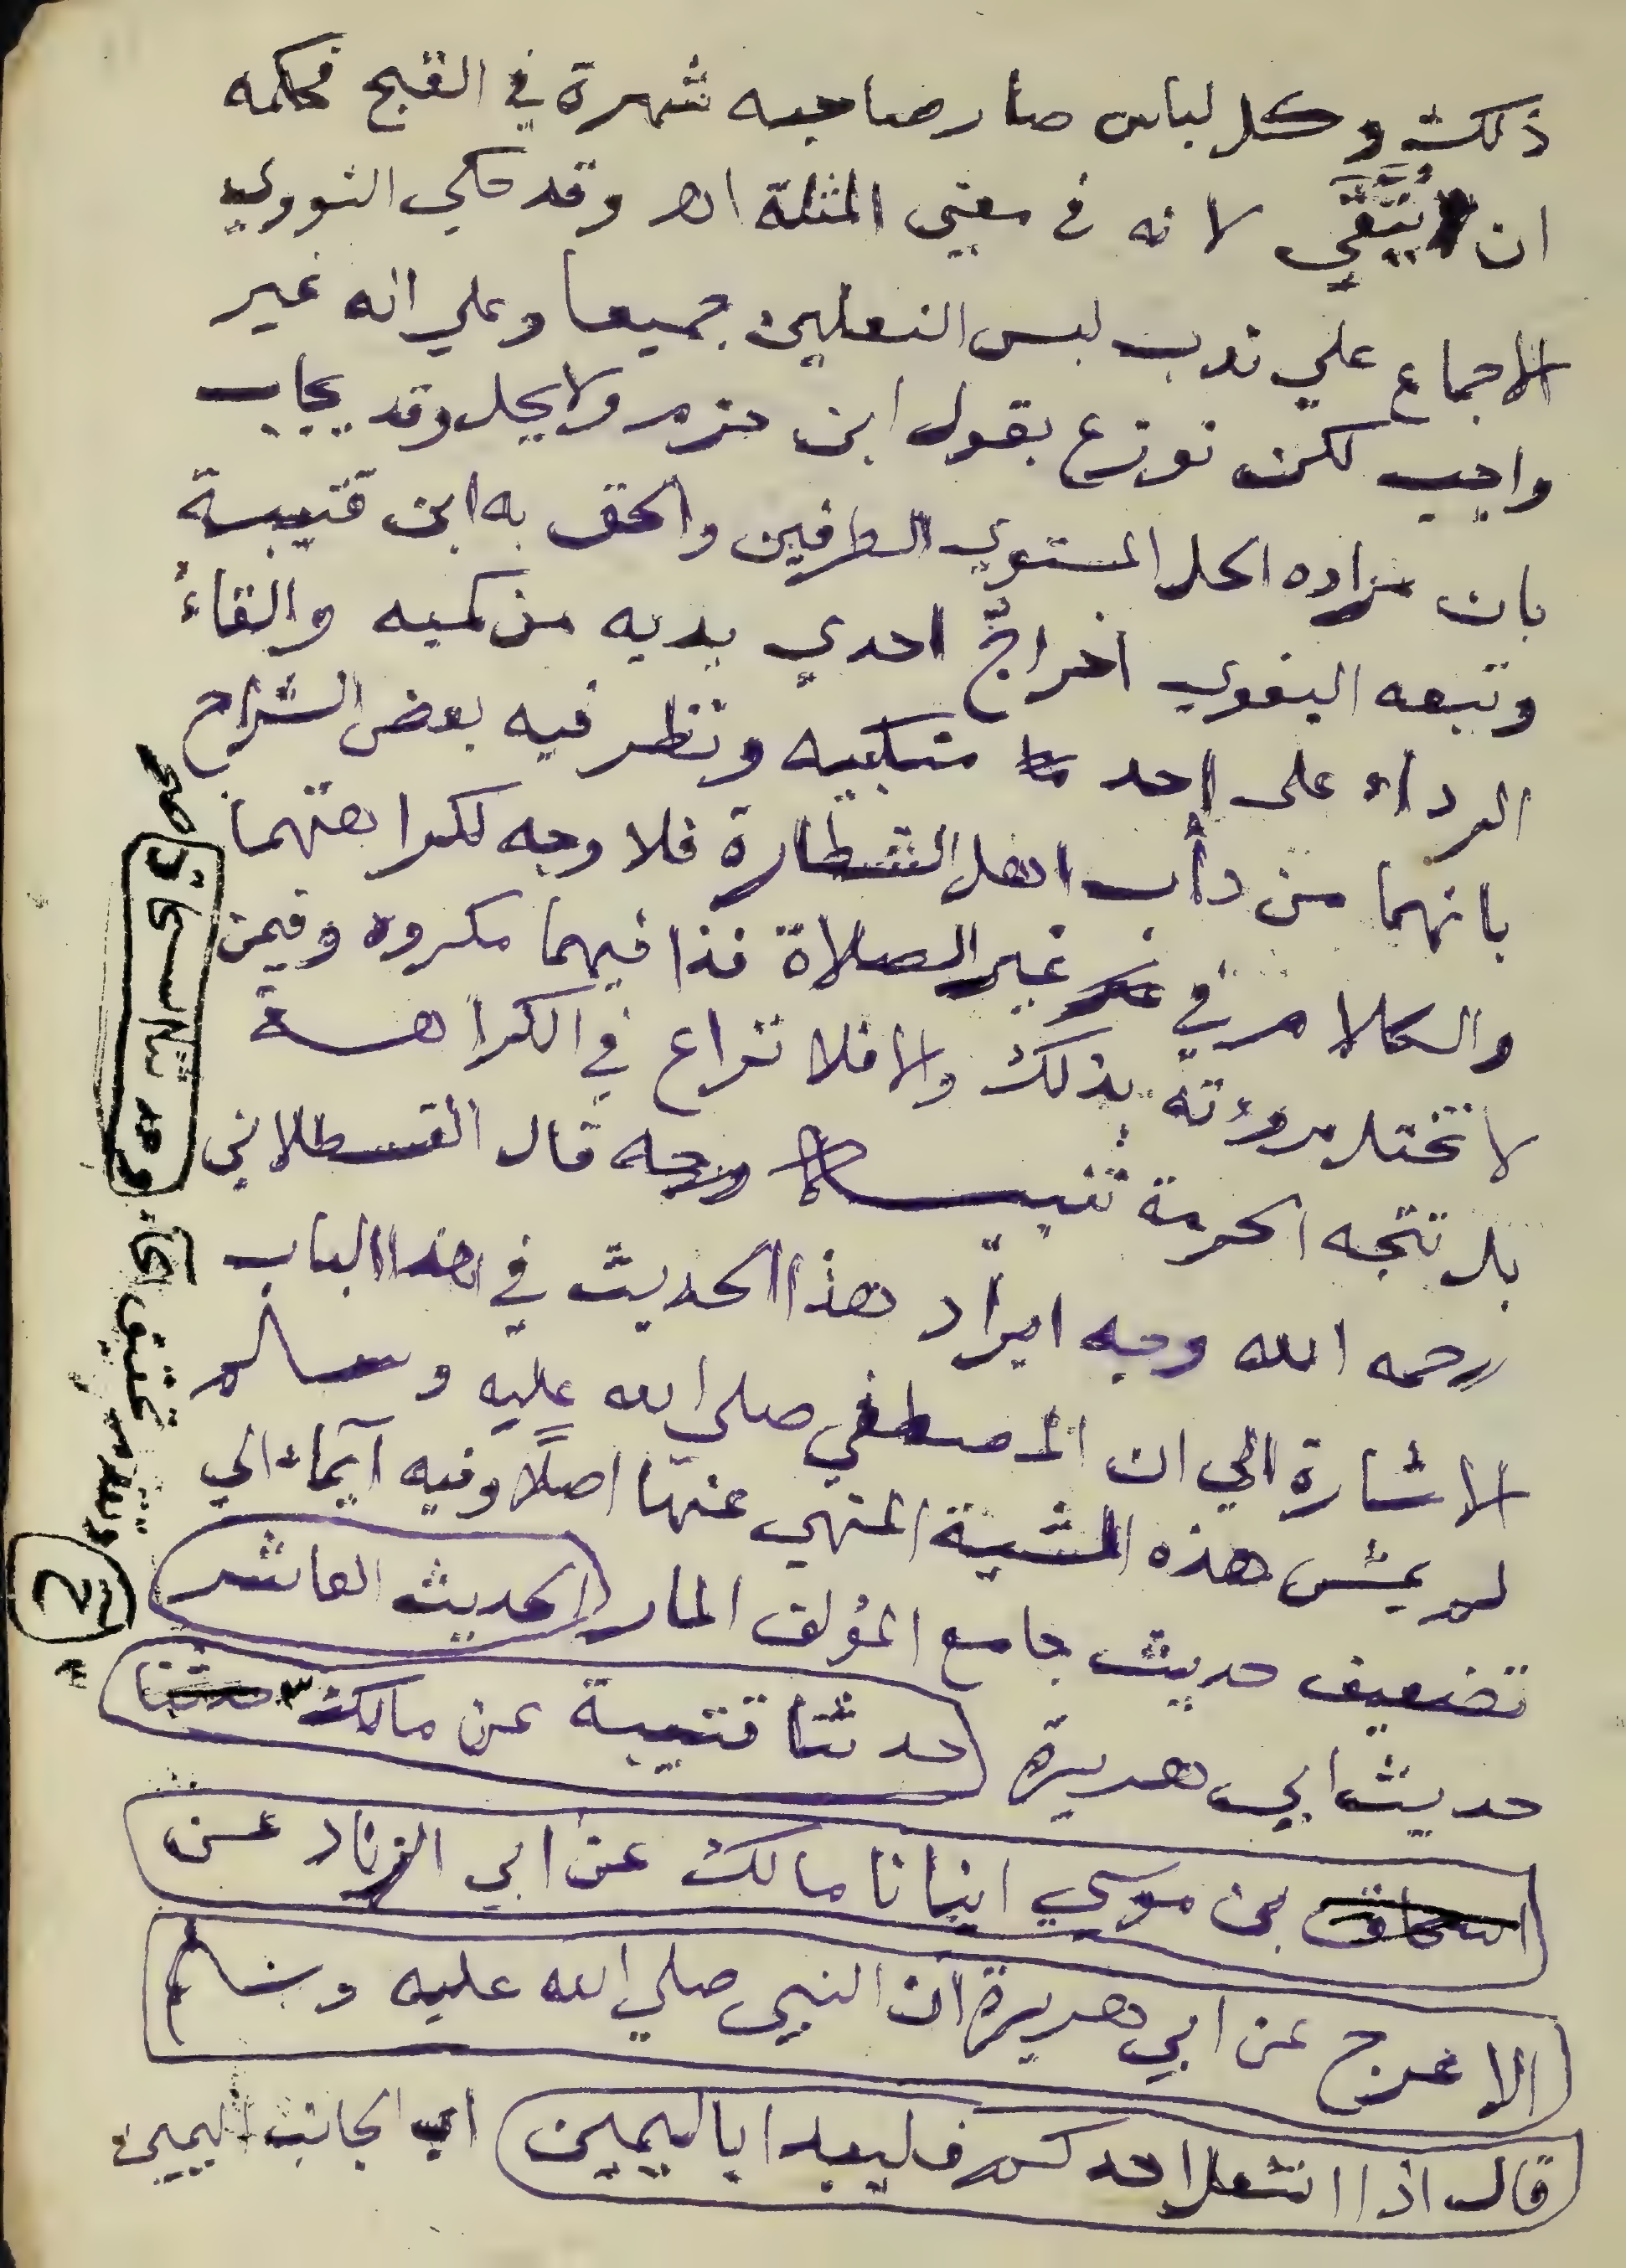 ذلك وكل لباس صار صاحبه شهرة في القبح فحكمه
ان يُتَّقَى لانه في معنى المثلة اه وقد حكي النووي
الاجماع علي ندب لبس النعلين جميعا وعلي انه غير
واجب لكن نوزع بقول ابن حزم ولا يحل وقد يجاب
بان مراده الحل المستوي الطرفين والحق به ابن قتيبة
وتبعه البغوي اخراج احدي يديه من كميه والقاءُ
الرداء على احد منكبيه ونظر فيه بعض الشراح
بانهما من دأب اهل الشطارة فلا وجه لكراهتهما
والكلام في غير الصلاة فذا فيهما مكروه وفيمن
لا تختل مروءته بذلك والا فلا نزاع في الكراهة
بل تتجه الحرمة تنبيه قال القسطلاني
رحمه الله وجه ايراد هذا الحديث في هذا الباب
الاشارة الي ان المصطفي صلي الله عليه وسلم
لم يمش هذه المشية المنهي عنها اصلًا وفيه آيماءالي
تضعيف حديث جامع المؤلف المار الحديث العاشر
حديث ابي هريرة حدثنا قتيبة عن مالك ٣ حدثنا
اسحاق بن موسي انبانا مالك عن ابي الزناد عن
الاعرج عن ابي هريرة ان النبي صلي الله عليه وسلم
قال اذا انتعل احدكم فليبدا باليمين اي الجانب اليمين